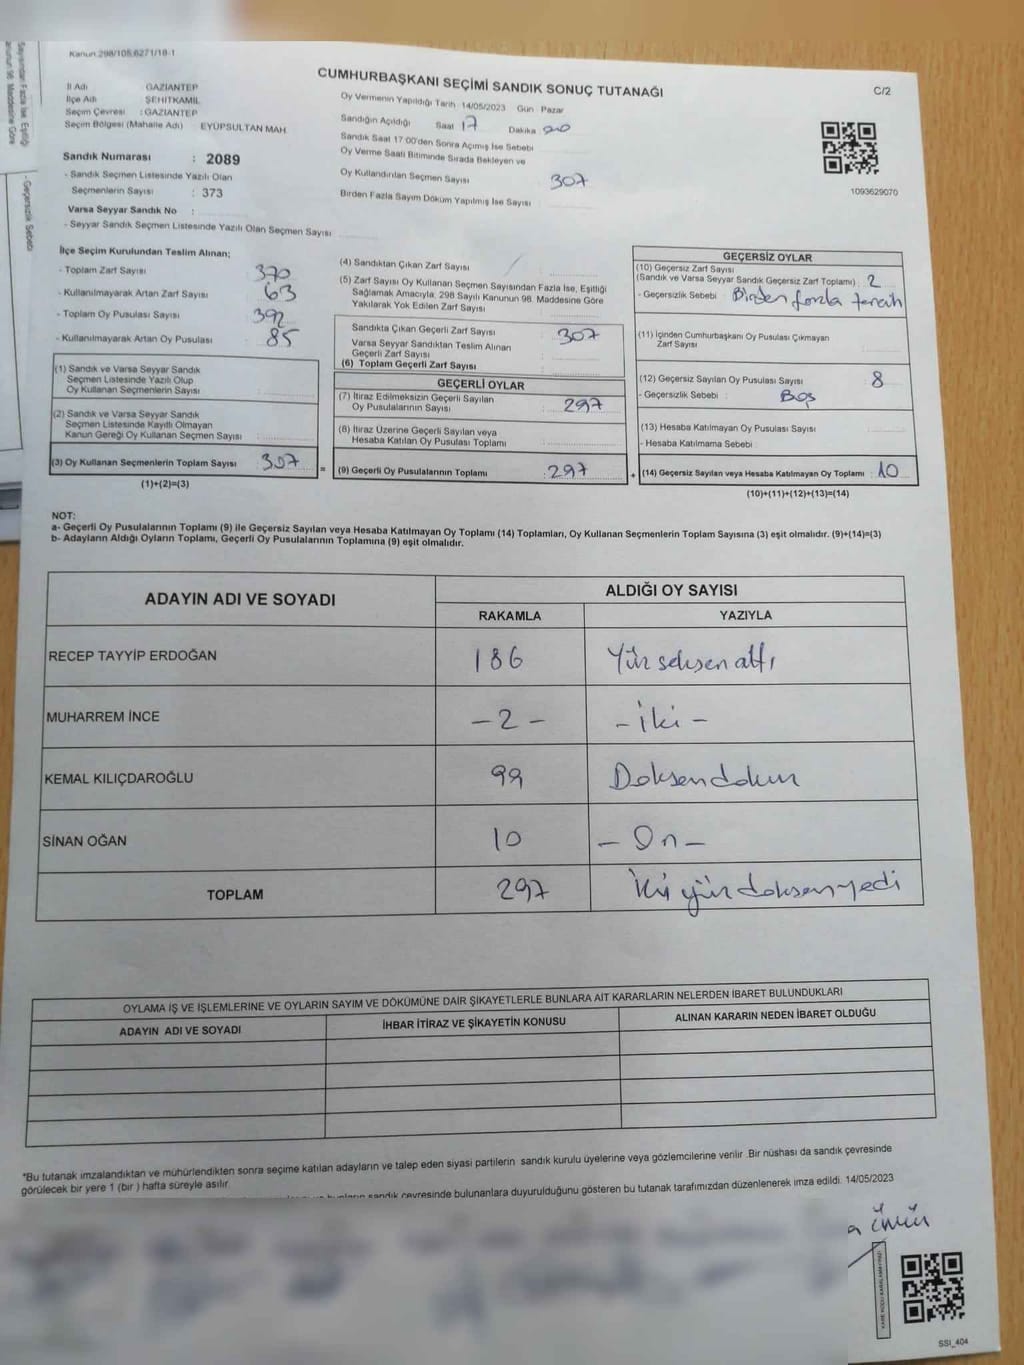 Kanun 298/105,6271/18-1
CUMHURBAŞKANI SEÇİMİ SANDIK SONUÇ TUTANAĞI
C/2
İl Adı : GAZİANTEP
İlçe Adı : ŞEHİTKAMİL
Seçim Çevresi : GAZİANTEP
Seçim Bölgesi (Mahalle Adı) EYÜPSULTAN MAH.
Sandık Numarası : 2089
- Sandık Seçmen Listesinde Yazılı Olan
Seçmenlerin Sayısı : 373
Varsa Seyyar Sandık No :
- Seyyar Sandık Seçmen Listesinde Yazılı Olan Seçmen Sayısı
Oy Vermenin Yapıldığı Tarih 14/05/2023 Gün Pazar
Sandığın Açıldığı Saat 17 Dakika 00
Sandık Saat 17 00'den Sonra Açımış İse Sebebi
Oy Verme Saati Bitiminde Sırada Bekleyen ve
Oy Kullandırılan Seçmen Sayısı 307
Birden Fazla Sayım Döküm Yapılmış İse Sayısı
1093629070
İlçe Seçim Kurulundan Teslim Alınan;
- Toplam Zarf Sayısı 370
- Kullanılmayarak Artan Zarf Sayısı 63
- Toplam Oy Pusulası Sayısı 392
- Kullanılmayarak Artan Oy Pusulası 85
(1) Sandık ve Varsa Seyyar Sandık
Seçmen Listesinde Yazılı Olup
Oy Kullanan Seçmenlerin Sayısı :
(2) Sandık ve Varsa Seyyar Sandık
Seçmen Listesinde Kayıtlı Olmayan
Kanun Gereği Oy Kullanan Seçmen Sayısı :
(3) Oy Kullanan Seçmenlerin Toplam Sayısı : 307 =
(1)+(2)=(3)
(4) Sandıktan Çıkan Zarf Sayısı
(5) Zarf Sayısı Oy Kullanan Seçmen Sayısından Fazla İse, Eşitliği
Sağlamak Amacıyla, 298 Sayılı Kanunun 98. Maddesine Göre
Yakılarak Yok Edilen Zarf Sayısı
Sandıkta Çıkan Geçerli Zarf Sayısı 307
Varsa Seyyar Sandıktan Teslim Alınan
Geçerli Zarf Sayısı
(6) Toplam Geçerli Zarf Sayısı
GEÇERLİ OYLAR
(7) İtiraz Edilmeksizin Geçerli Sayılan
Oy Pusulalarının Sayısı : 297
(8) İtiraz Üzerine Geçerli Sayılan veya
Hesaba Katılan Oy Pusulası Toplamı
(9) Geçerli Oy Pusulalarının Toplamı : 297 +
GEÇERSİZ OYLAR
(10) Geçersiz Zarf Sayısı
(Sandık ve Varsa Seyyar Sandık Geçersiz Zarf Toplamı) 2
- Geçersizlik Sebebi : Birden fazla tercih
(11) İçinden Cumhurbaşkanı Oy Pusulası Çıkmayan
Zarf Sayısı
(12) Geçersiz Sayılan Oy Pusulası Sayısı 8
- Geçersizlik Sebebi : Boş
(13) Hesaba Katılmayan Oy Pusulası Sayısı :
- Hesaba Katılmama Sebebi :
(14) Geçersiz Sayılan veya Hesaba Katılmayan Oy Toplamı : 10
(10)+(11)+(12)+(13)=(14)
NOT:
a- Geçerli Oy Pusulalarının Toplamı (9) ile Geçersiz Sayılan veya Hesaba Katılmayan Oy Toplamı (14) Toplamları, Oy Kullanan Seçmenlerin Toplam Sayısına (3) eşit olmalıdır. (9)+(14)=(3)
b- Adayların Aldığı Oyların Toplamı, Geçerli Oy Pusulalarının Toplamına (9) eşit olmalıdır.
ADAYIN ADI VE SOYADI
ALDIĞI OY SAYISI
RAKAMLA YAZIYLA
RECEP TAYYİP ERDOĞAN 186 Yüz seksen altı
MUHARREM İNCE -2- -İki-
KEMAL KILIÇDAROĞLU 99 Doksandokuz
SİNAN OĞAN 10 -On-
TOPLAM 297 İki yüz doksan yedi
OYLAMA İŞ VE İŞLEMLERİNE VE OYLARIN SAYIM VE DÖKÜMÜNE DAİR ŞİKAYETLERLE BUNLARA AİT KARARLARIN NELERDEN İBARET BULUNDUKLARI
ADAYIN ADI VE SOYADI İHBAR İTİRAZ VE ŞİKAYETİN KONUSU ALINAN KARARIN NEDEN İBARET OLDUĞU
*Bu tutanak imzalandıktan ve mühürlendikten sonra seçime katılan adayların ve talep eden siyasi partilerin sandık kurulu üyelerine veya gözlemcilerine verilir. Bir nüshası da sandık çevresinde
görülecek bir yere 1 (bir ) hafta süreyle asılır.
sandık çevresinde bulunanlara duyurulduğunu gösteren bu tutanak tarafımızdan düzenlenerek imza edildi. 14/05/2023
SSİ_404